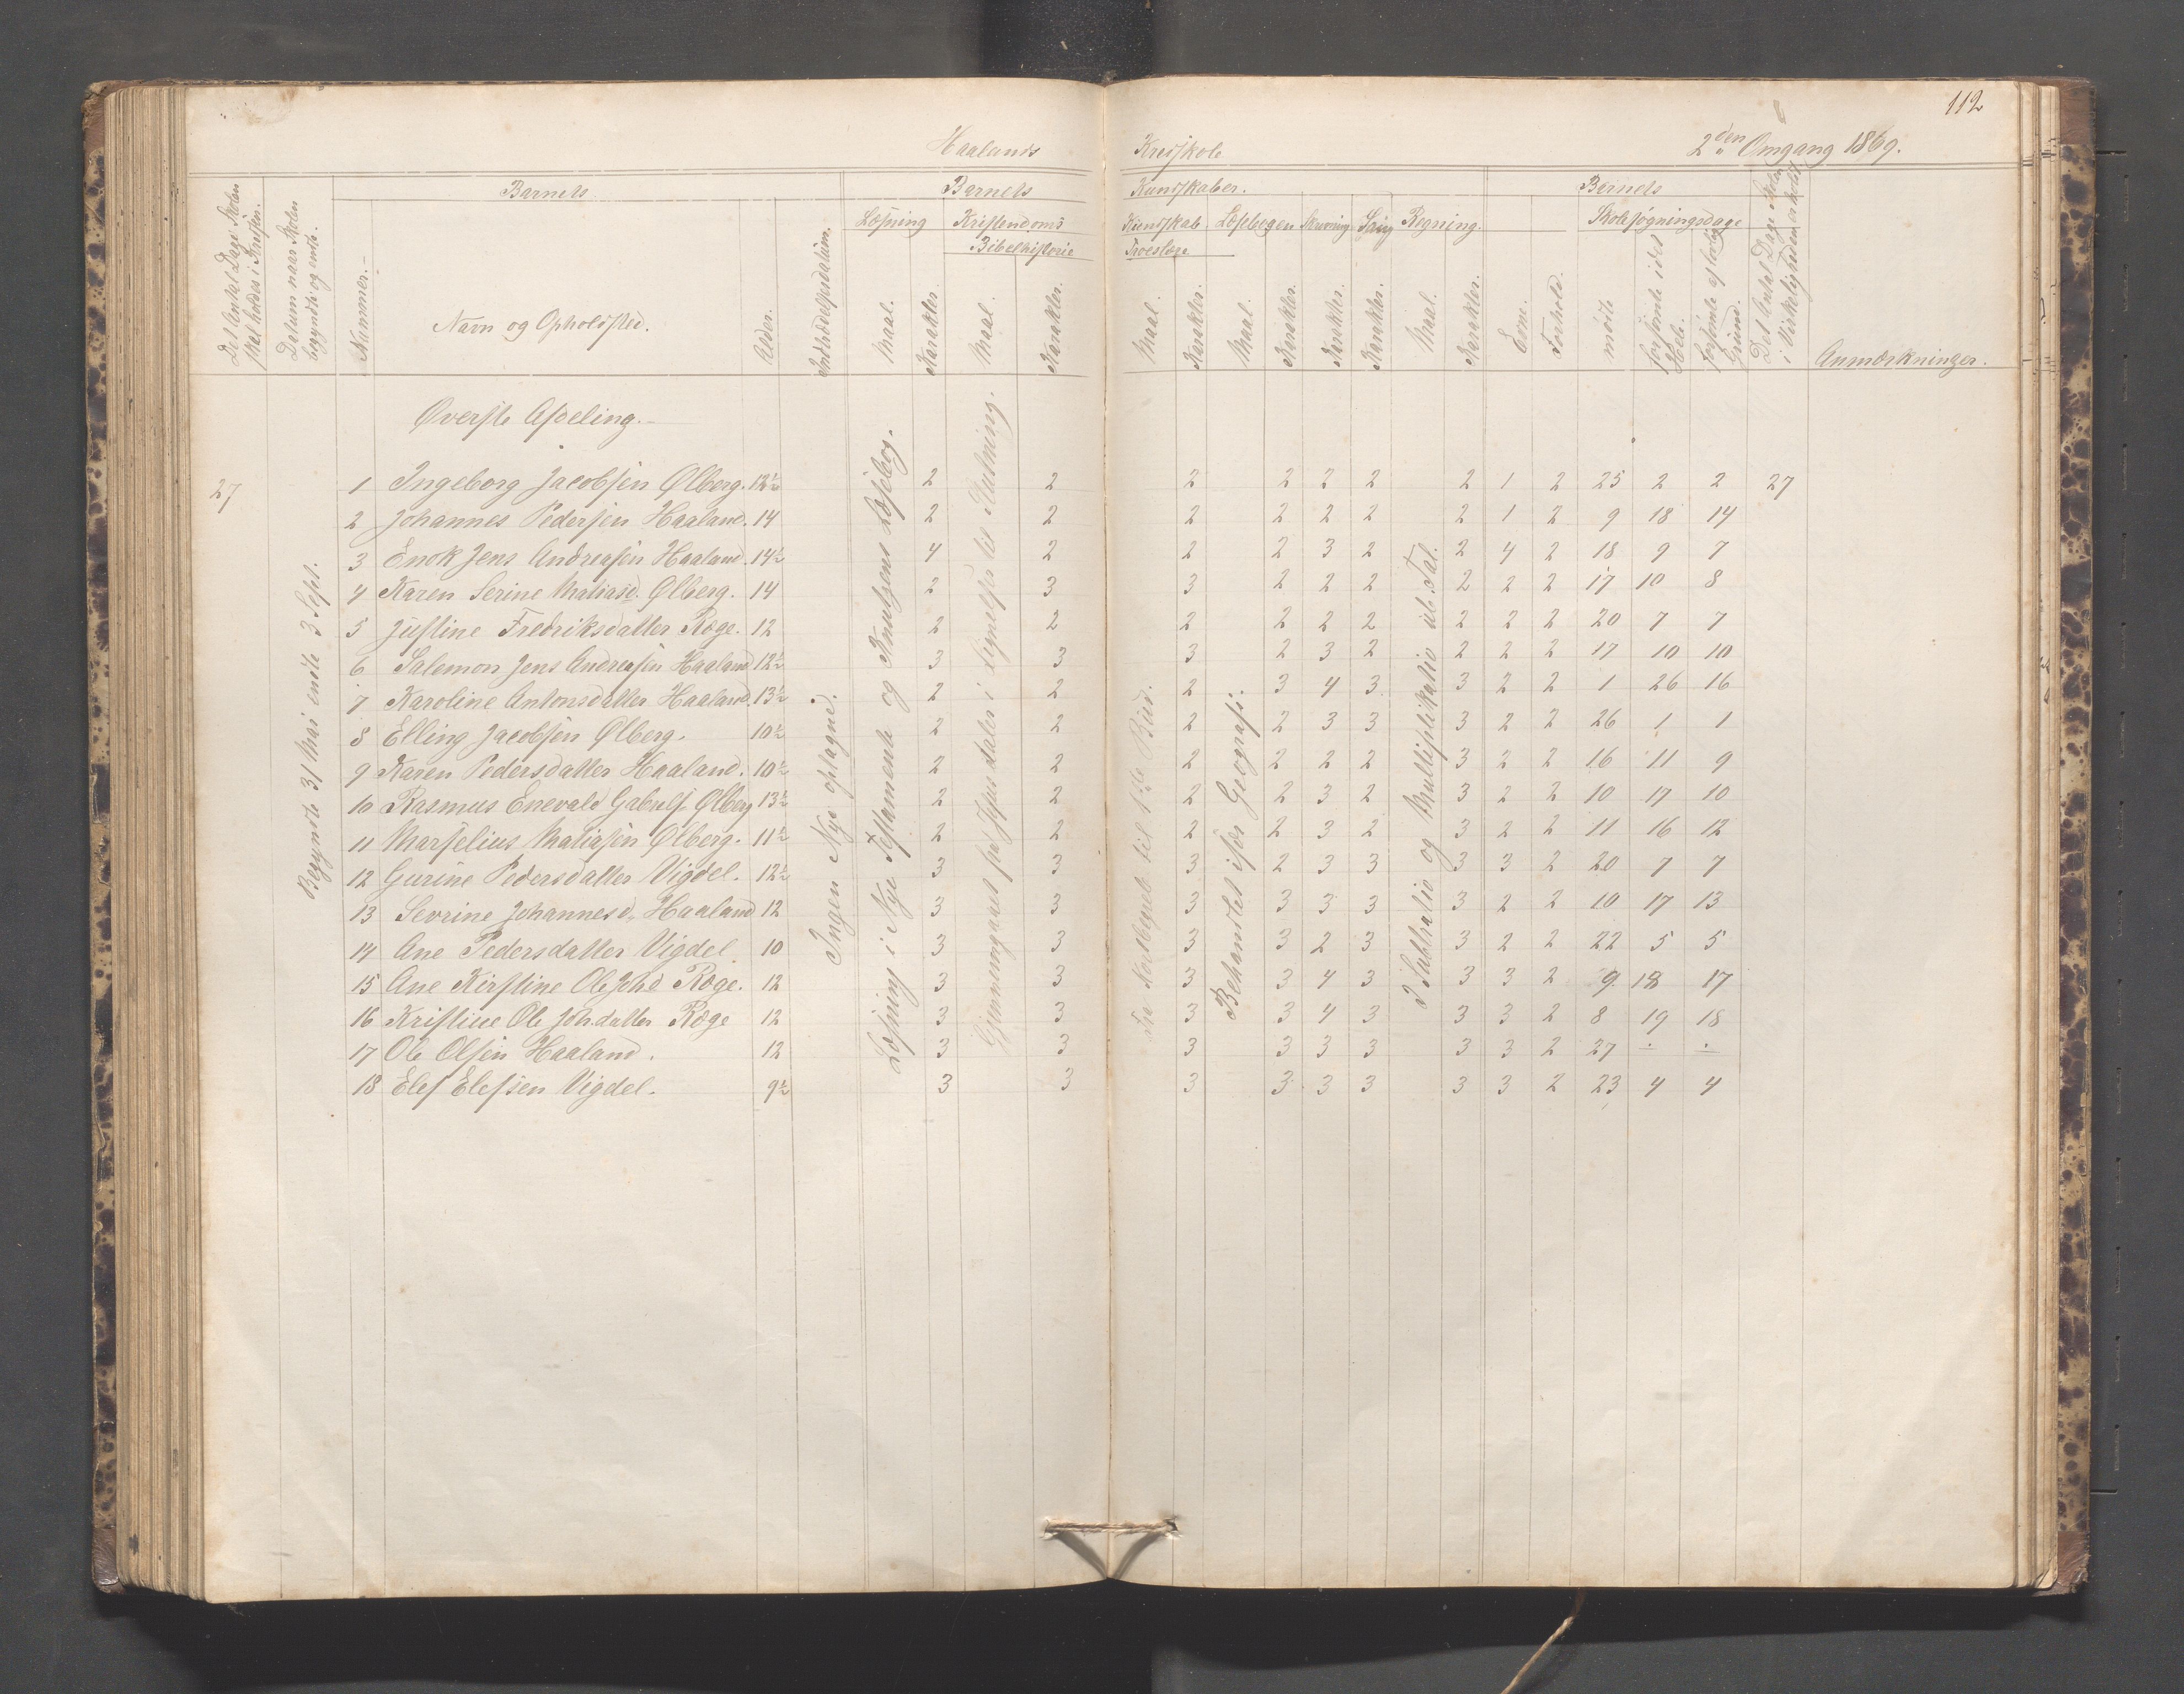 112
Haalands Kredsskole 2den Omgang 1869.
Det Antal Dage Skolen skal holdes i Kredsen.
Datum naar Skolen begyndte og endte.
Barnets
Nummer.
Navn og Opholdssted.
Alder.
Indtrædelsesdatum.
Barnets Kundskaber.
Læsning
Maal.
Karakter.
Kristendoms Kundskab
Bibelhistorie
Maal.
Karakter.
Troeslære
Maal.
Karakter.
Læsebogen
Maal.
Karakter.
Skrivning
Karakter.
Sang
Karakter.
Regning.
Maal.
Karakter.
Evne.
Forhold.
Barnets
Skolesøgningsdage
mødte
forsømte i det Hele.
forsømte af lovlig Grund.
Det Antal Dage Skolen i Virkeligheden er holdt
Anmærkninger.
Øverste Afdeling.
27
Begyndte 31 Mai endte 3 Sept.
Ingen Nye optagne.
Læsning i Nye Testamente og Knutzens Læsebog.
Gjennemgaaet fra Jesus taler i Lignelser til Slutning.
Fra Nordbegel til 1ste Bud.
Behandlet især Geografi.
I Subtratio og Multiplikatio ib. Tal.
1 Ingeborg Jacobsen Ølberg. 12½ 2 2 2 2 2 2 2 1 2 25 2 2 27
2 Johannes Pedersen Haaland. 14 2 2 2 2 2 2 2 1 2 9 18 14
3 Enok Jens Andreasen Haaland. 14½ 4 2 2 2 3 2 2 4 2 18 9 7
4 Karen Serine Matiasd. Ølberg. 14 2 3 3 2 2 2 2 2 2 17 10 8
5 Justine Fredriksdatter Ræge. 12 2 2 2 2 2 2 2 2 2 20 7 7
6 Salemon Jens Andreasen Haaland 12½ 3 3 3 2 3 2 2 2 2 17 10 10
7 Karoline Antonsdatter Haaland. 13½ 2 2 2 3 4 3 3 2 2 1 26 16
8 Elling Jacobsen Ølberg. 10½ 2 2 2 2 3 3 3 2 2 26 1 1
9 Karen Pedersdatter Haaland. 10½ 2 2 2 2 2 2 3 2 2 16 11 9
10 Rasmus Enevald Gabrielf. Ølberg 13½ 2 2 2 2 3 2 3 2 2 10 17 10
11 Marselius Matiasen Ølberg. 11½ 2 2 2 2 3 2 3 2 2 11 16 12
12 Gurine Pedersdatter Vigdel. 12½ 3 3 3 2 3 3 3 3 2 20 7 7
13 Sevrine Johannesd. Haaland 12 3 3 3 3 3 3 3 2 2 10 17 13
14 Ane Pedersdatter Vigdel. 10 3 3 3 3 2 3 3 2 2 22 5 5
15 Ane Kirstine Ole Johd Ræge. 12 3 3 3 3 4 3 3 3 2 9 18 17
16 Kristine Ole Joh.datter Ræge 12 3 3 3 3 4 3 3 3 2 8 19 18
17 Ole Olsen Haaland. 12 3 3 3 3 3 3 3 3 2 27 ÷ ÷
18 Elef Elefsen Vigdel. 9½ 3 3 3 3 3 3 3 3 2 23 4 4